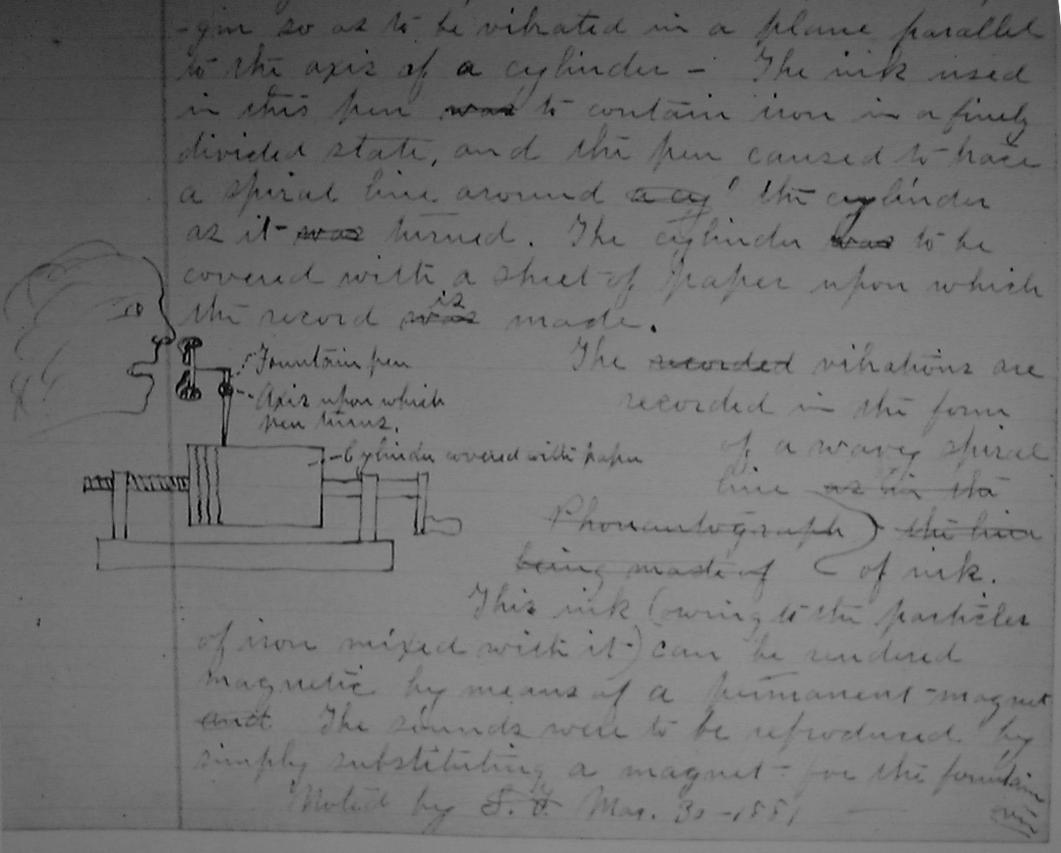 -gm so as to be vibrated in a plane parallel
to the axis of a cylinder - The ink used
in this pen was to contain iron in a finely
divided state, and the pen caused to trace
a spiral line around a cy the cylinder
as it was turned. The cylinder was to be
covered with a sheet of paper upon which
the record was is made.
Fountain pen
Axis upon which
pen turns.
Cylinder covered with paper
The recorded vibrations are
recorded in the form
of a wavy spiral
line as in the
Phonautograph the line
being made of of ink.
This ink (owing to the particles
of iron mixed with it) can be rendered
magnetic by means of a permanent-magnet
and The sounds were to be reproduced by
simply substituting a magnet for the fountain
pen
Noted by S. T. Mar. 30-1881